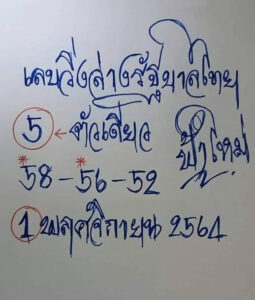 เลขวิ่งล่างรัฐบาลไทย
5 ← ตัวเดียว
ฟ้าใหม่
*58 - *56 - 52
1 พฤศจิกายน 2564